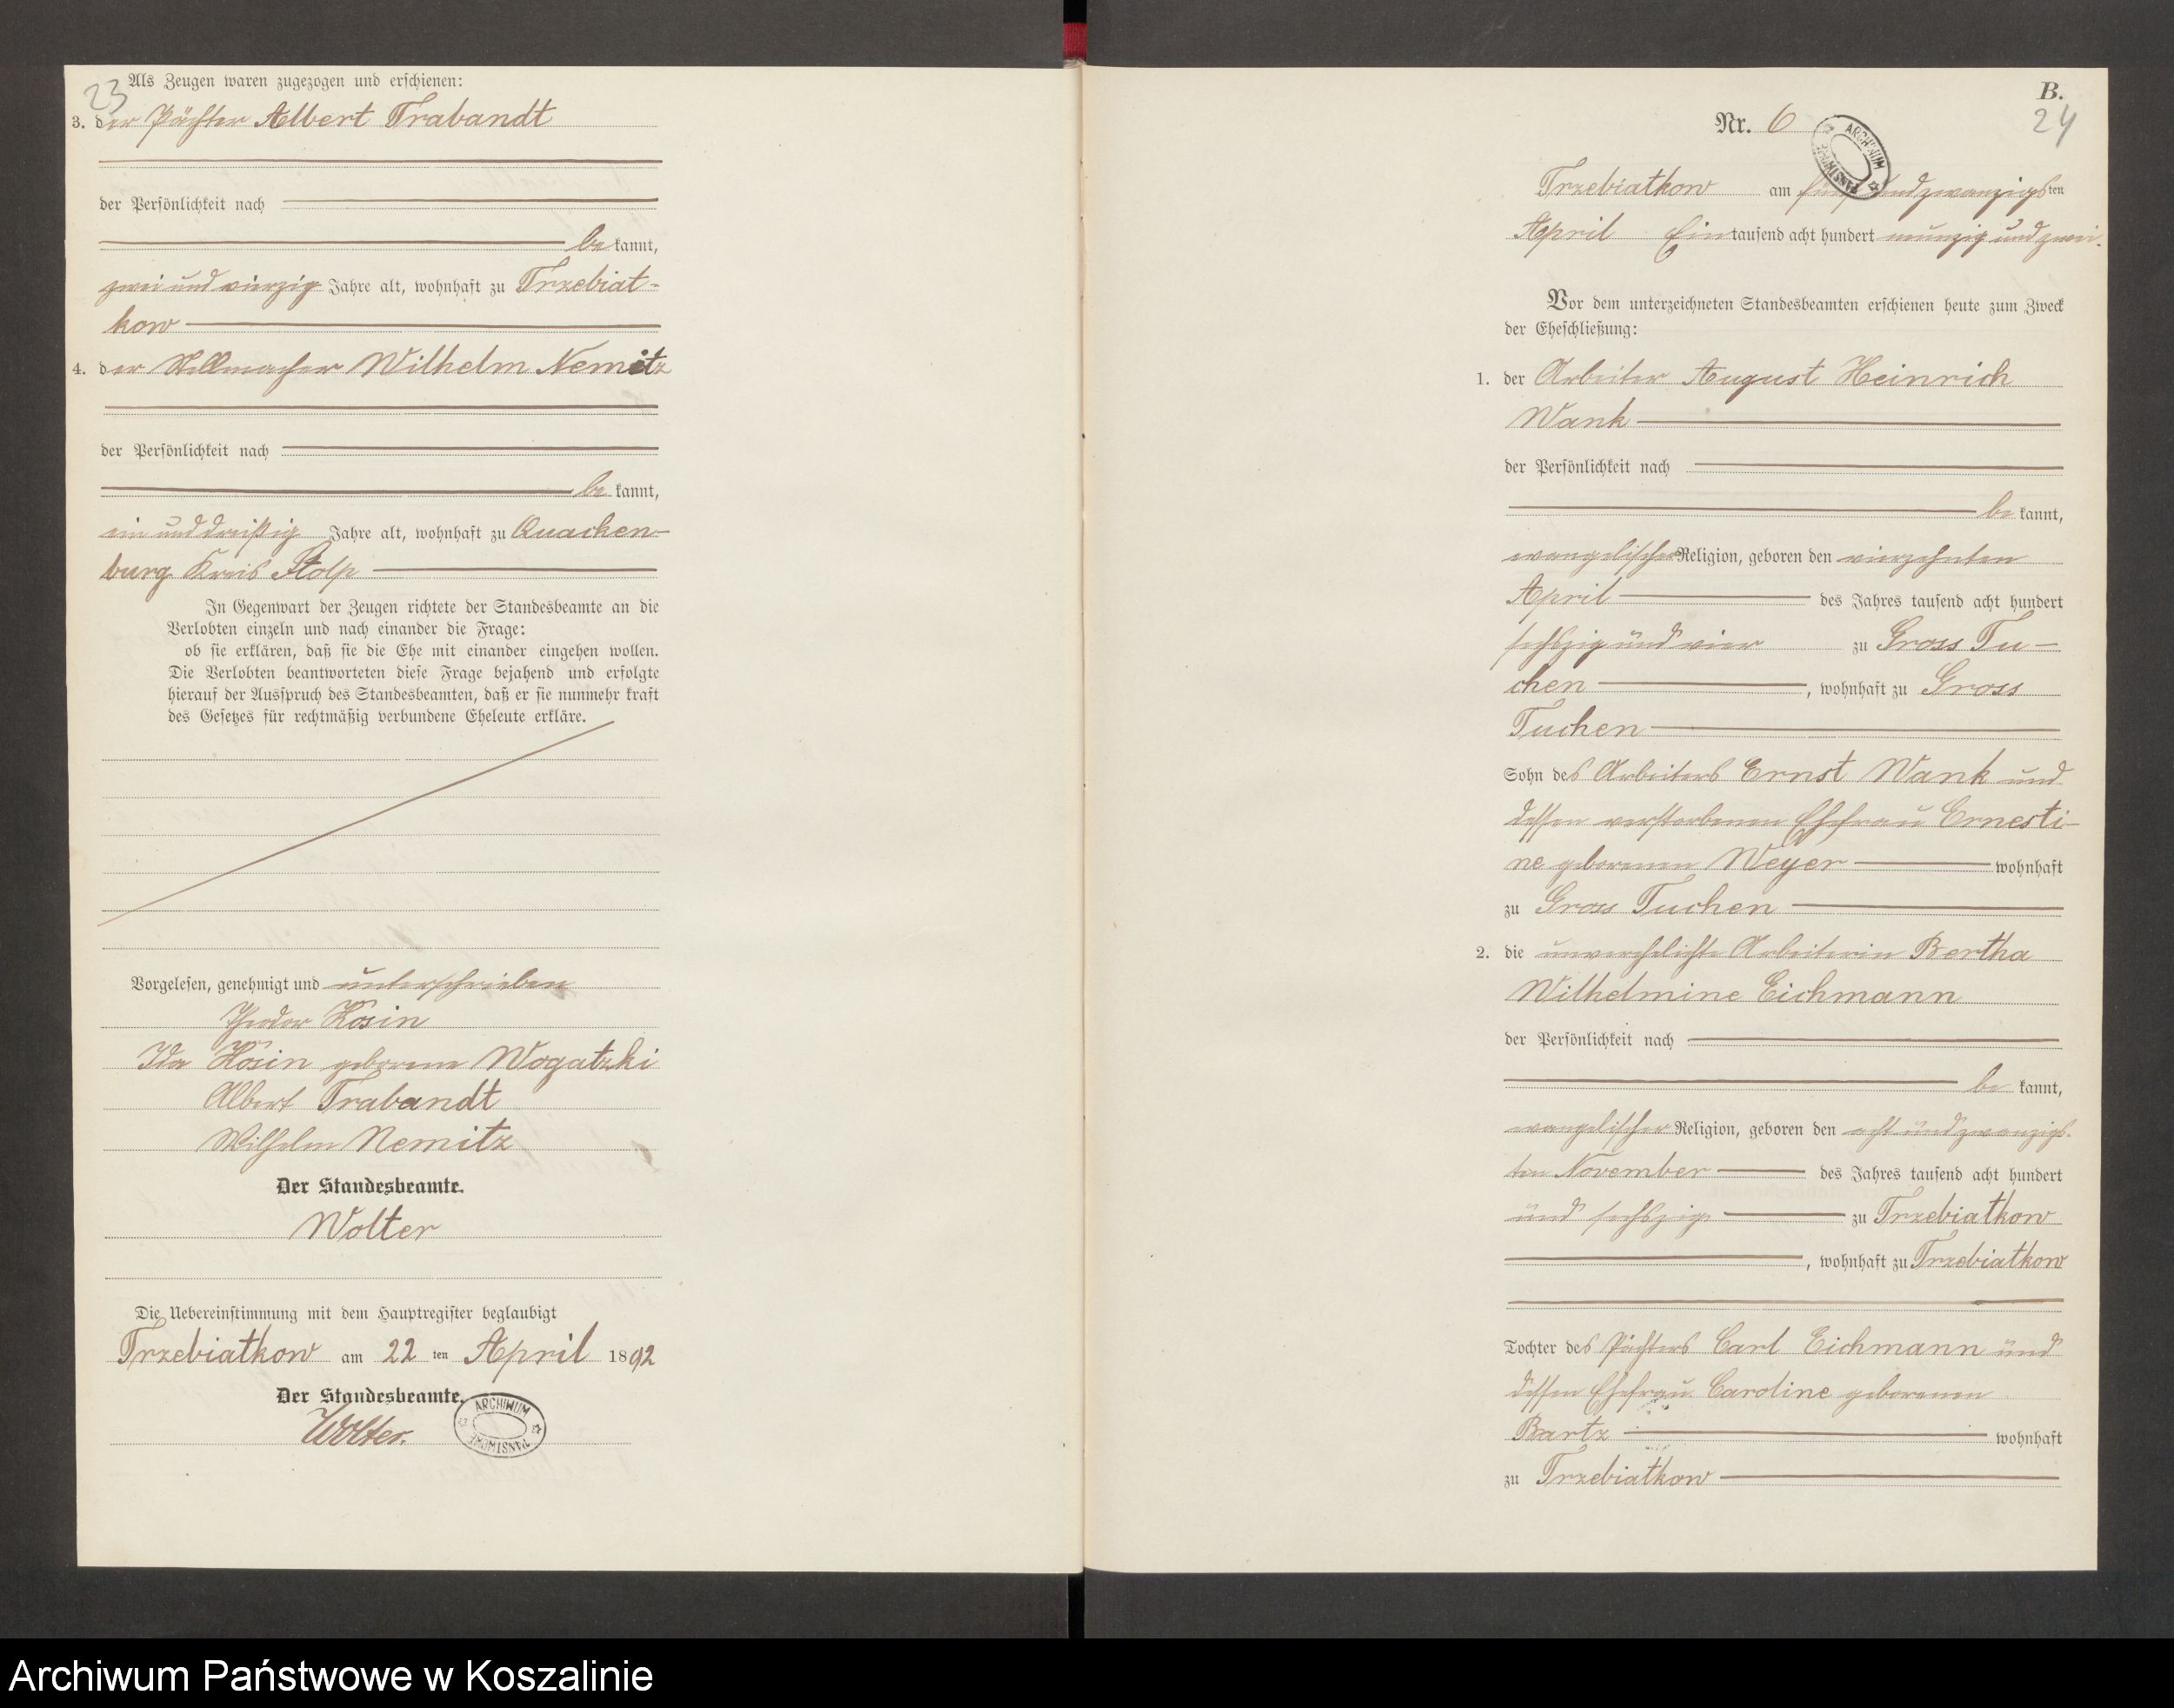 23
Als Zeugen waren zugezogen und erschienen:
3. der Pächter Albert Trabandt
der Persönlichkeit nach
be kannt,
zwei und vierzig Jahre alt, wohnhaft zu Trzebiat-
kow
4. der Stellmacher Wilhelm Nemitz
der Persönlichkeit nach
be kannt,
ein und dreißig Jahre alt, wohnhaft zu Quacken-
burg Kreis Stolp
In Gegenwart der Zeugen richtete der Standesbeamte an die
Verlobten einzeln und nach einander die Frage:
ob sie erklären, daß sie die Ehe mit einander eingehen wollen.
Die Verlobten beantworteten diese Frage bejahend und erfolgte
hierauf der Ausspruch des Standesbeamten, daß er sie nunmehr kraft
des Gesetzes für rechtmäßig verbundene Eheleute erkläre.
Vorgelesen, genehmigt und unterschrieben
Theodor Kosin
Ida Kosin geborene Wogatzki
Albert Trabandt
Wilhelm Nemitz
Der Standesbeamte.
Wolter
Die Uebereinstimmung mit dem Hauptregister beglaubigt
Trzebiatkow am 22 ten April 1892
Der Standesbeamte.
Wolter.
ARCHIWUM PAŃSTWOWE
B.
24
Nr. 6
ARCHIWUM PAŃSTWOWE
Trzebiatkow am fünf und zwanzigsten
April Eintausend acht hundert neunzig und zwei.
Vor dem unterzeichneten Standesbeamten erschienen heute zum Zweck
der Eheschließung:
1. der Arbeiter August Heinrich
Wank
der Persönlichkeit nach
be kannt,
evangelischer Religion, geboren den vierzehnten
April des Jahres tausend acht hundert
sechszig und vier zu Gross Tu-
chen, wohnhaft zu Gross
Tuchen
Sohn des Arbeiters Ernst Wank und
dessen verstorbenen Ehefrau Ernesti-
ne geborenen Weyer wohnhaft
zu Gross Tuchen
2. die unverehelichte Arbeiterin Bertha
Wilhelmine Eichmann
der Persönlichkeit nach
be kannt,
evangelischer Religion, geboren den acht und zwanzigs-
ten November des Jahres tausend acht hundert
und sechszig zu Trzebiatkow
, wohnhaft zu Trzebiatkow
Tochter des Pächters Carl Eichmann und
dessen Ehefrau Caroline geborenen
Bartz wohnhaft
zu Trzebiatkow
Archiwum Państwowe w Koszalinie